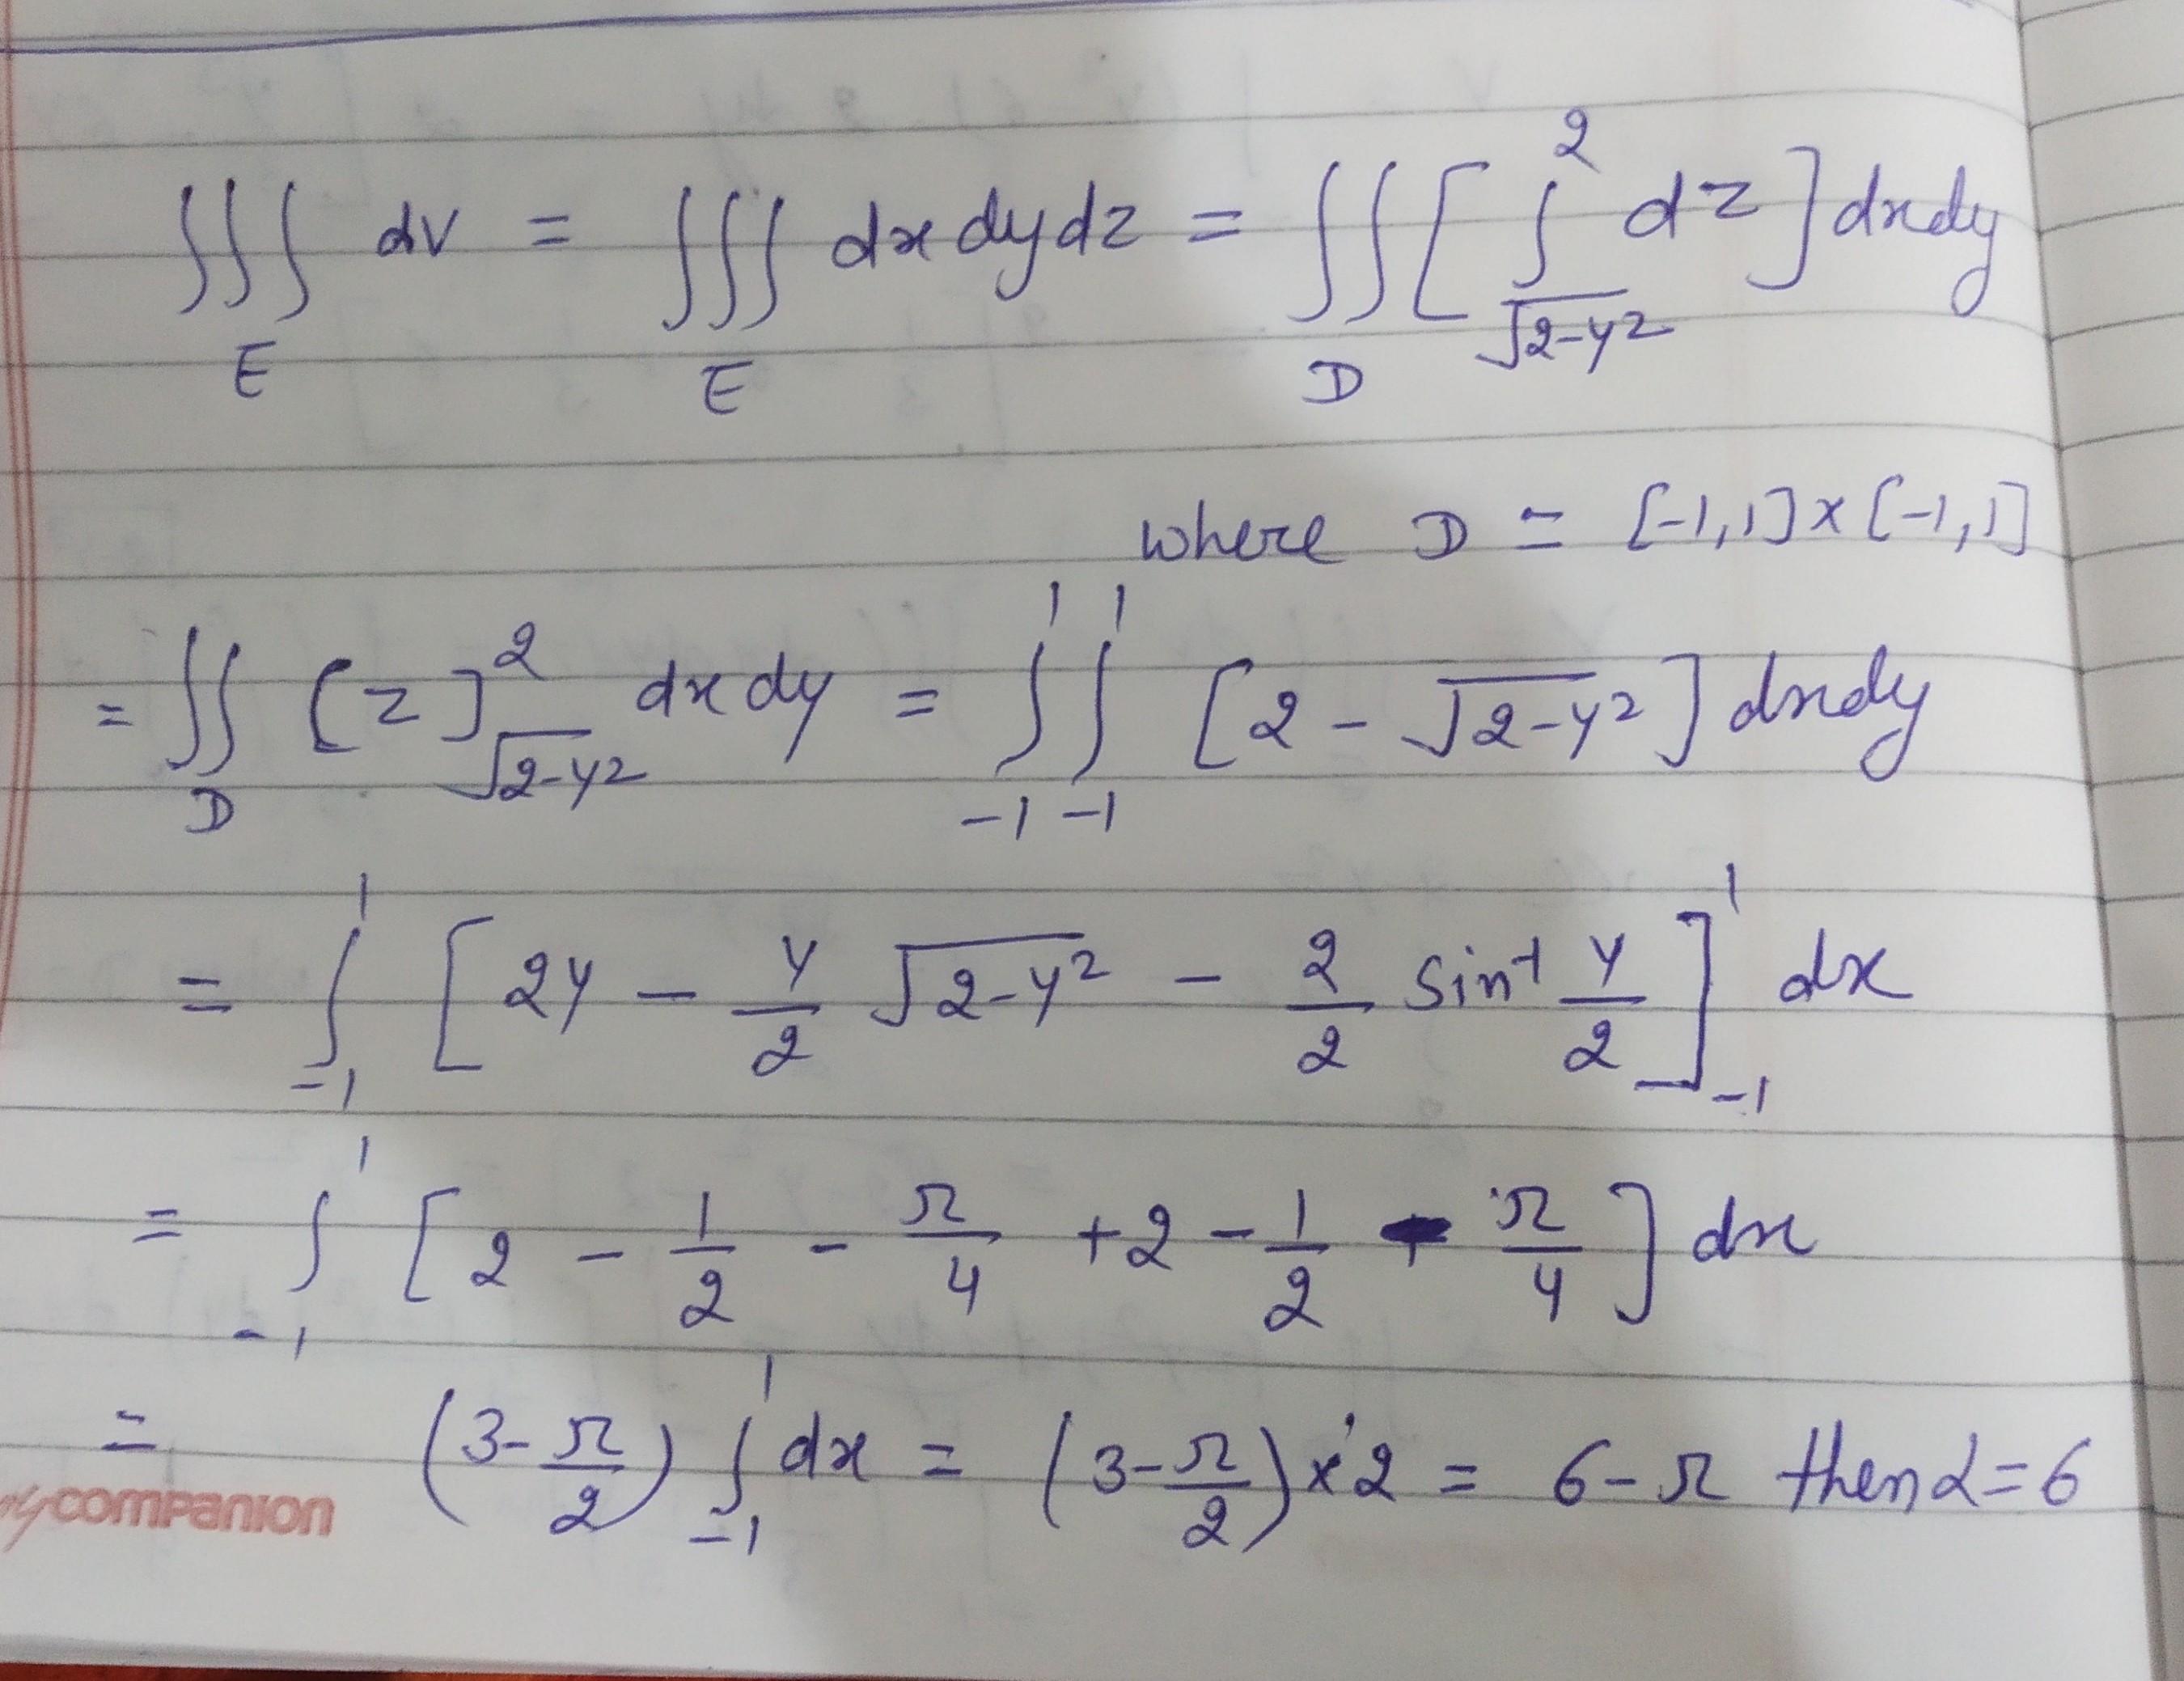 ∫∫∫_E dv = ∫∫∫_E dx dy dz = ∫∫_D [ ∫_{√(2-y²)}^{2} dz ] dx dy
where D = [-1,1] × [-1,1]
= ∫∫_D [z]_{√(2-y²)}^{2} dx dy = ∫_{-1}^{1} ∫_{-1}^{1} [2 - √(2-y²)] dx dy
= ∫_{-1}^{1} [2y - y/2 √(2-y²) - 2/2 sin⁻¹ y/2]_{-1}^{1} dx
= ∫_{-1}^{1} [2 - 1/2 - π/4 + 2 - 1/2 - π/4] dx
= (3 - π/2) ∫_{-1}^{1} dx = (3 - π/2) × 2 = 6 - π then α = 6
my companion